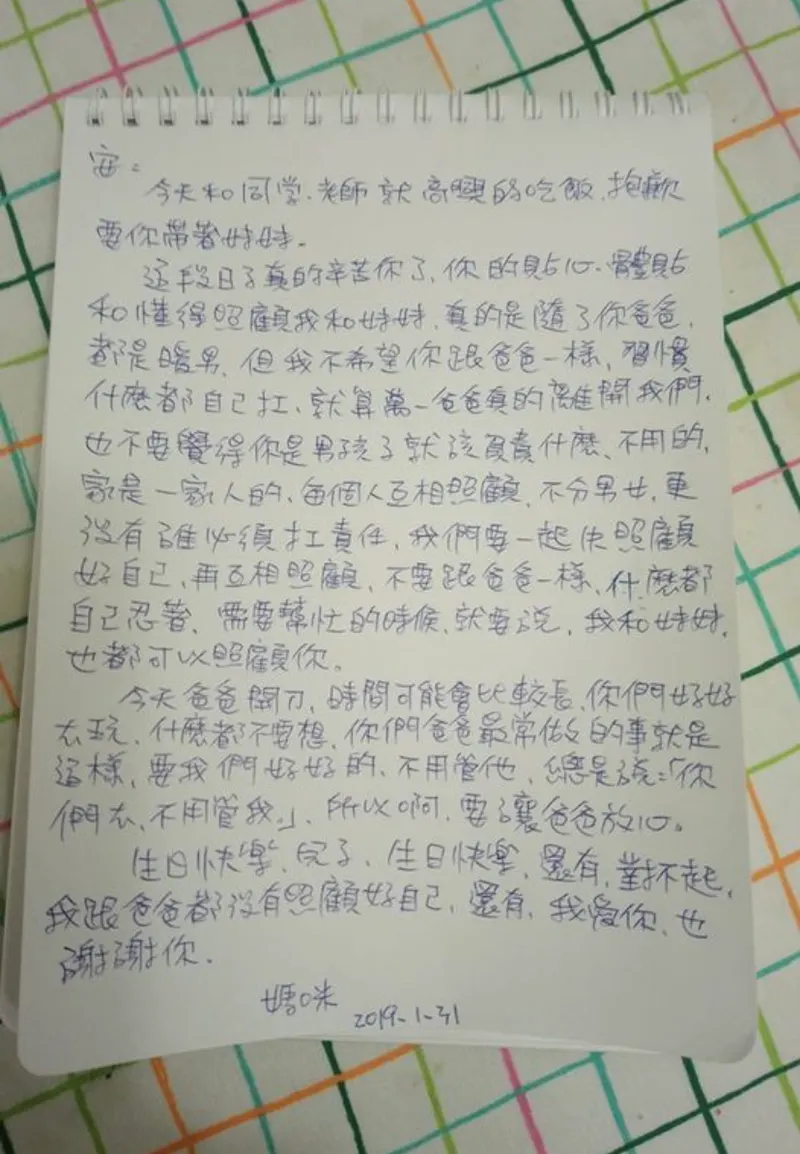 安：
今天和同学、老師就高興的吃飯、抱歉
要你帶著妹妹。
這段日子真的辛苦你了、你的貼心、體貼
和懂得照顧我和妹妹、真的是隨了你爸爸、
都是暖男、但我不希望你跟爸爸一樣、習慣
什麼都自己扛、就算萬一爸爸真的離開我們、
也不要覺得你是男孩子就該負責什麼、不用的、
家是一家人的、每個人互相照顧、不分男女、更
沒有誰必須扛責任、我們要一起先照顧
好自己、再互相照顧、不要跟爸爸一樣、什麼都
自己忍著、需要幫忙的時候、就要說、我和妹妹、
也都可以照顧你。
今天爸爸開刀、時間可能會比較長、你們好好
去玩、什麼都不要想、你們爸爸最常做的事就是
這樣、要我們好好的、不用管他、總是說：「你
們去、不用管我。」、所以啊、要讓爸爸放心。
生日快樂、兒子、生日快樂、還有、對不起、
我跟爸爸都沒有照顧好自己、還有、我愛你、也
謝謝你.
媽咪
2019-1-31